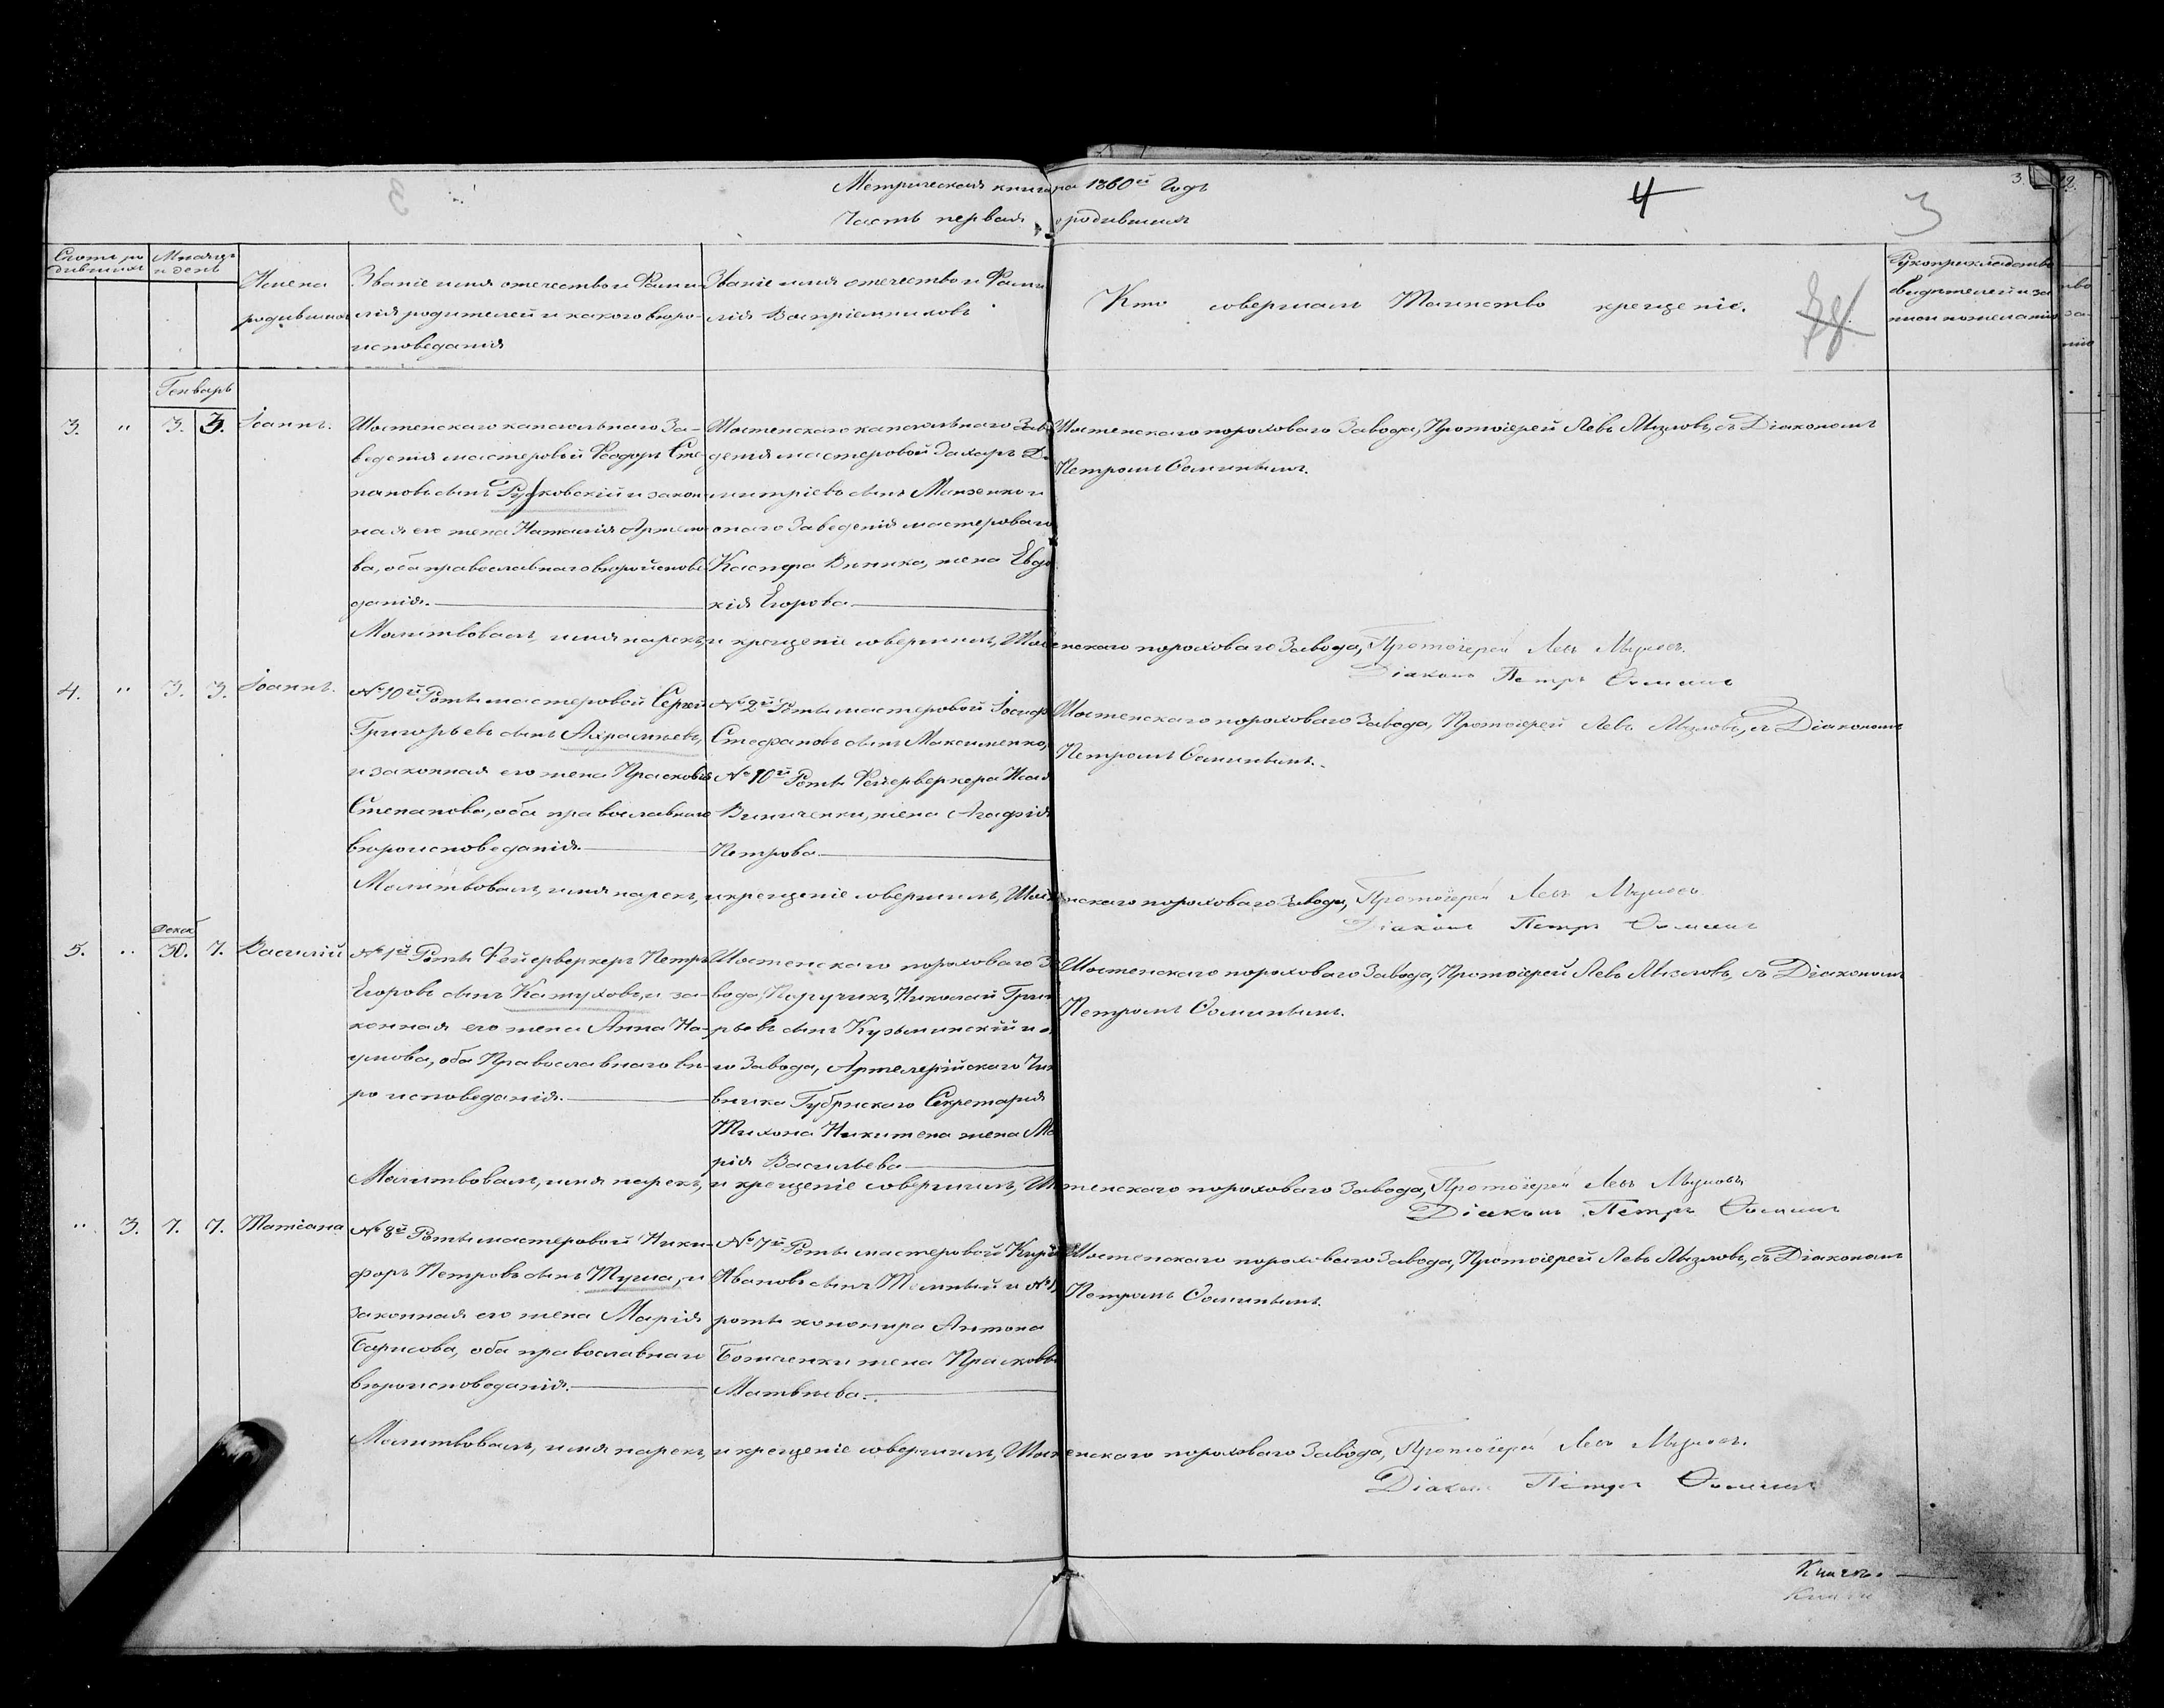 Метрическая книга на 1860й Годъ
4
3
3.
Часть первая о родившихся
Счотъ родившихся
Мѣсяцъ и день
Имена родившихся
Званіе имя отечество и Фамилія родителей и какого вѣроисповеданія
Званіе имя отечество и Фамилія Воспріемниковъ
Кто совершалъ Таинство крещеніе.
Рукоприкладство свидѣтелей и записи по желанію
Генваръ
3. " 3. 3. Іоаннъ.
Шостенскаго капсюльнаго За-
веденія мастеровый Феодоръ Сте-
пановъ сынъ Рудковскій и закон-
ная его жена Наталія Артемо-
ва, оба православнаго вѣроисповѣ-
данія.
Шостенскаго капсюльнаго Заве
денія мастеровой Захаръ Ди
митріевъ сынъ Манженко и
онаго Заведенія мастероваго
Каспра Винника, жена Евдо
кія Егорова
Шостенскаго пороховаго Завода, Протоіерей Левъ Мызловъ, съ Діакономъ
Петромъ Ѳоминымъ.
Молитвовалъ, имя нарекъ, и крещеніе совершилъ, Шостенскаго пороховаго Завода, Протоіерей Левъ Мызловъ.
Діаконъ Петръ Ѳоминъ
4. " 3. 3. Іоаннъ.
№ 10й Роты мастеровой Сергей
Григорьевъ сынъ Ахрамѣевъ,
и законная его жена Прасковья
Степанова, оба православнаго
вѣроисповеданія.
№ 2й Роты мастеровой Іосифъ
Стефановъ сынъ Максименко,
№ 10й Роты Фейерверкера
Виниченки, жена Агафія
Петрова
Шостенскаго пороховаго Завода, Протоіерей Левъ Мызловъ, съ Діакономъ
Петромъ Ѳоминымъ.
Молитвовалъ, имя нарекъ, и крещеніе совершилъ, Шостенскаго пороховаго Завода, Протоіерей Левъ Мызловъ.
Діаконъ Петръ Ѳоминъ
Декаб
5. " 30. 7. Василій
№ 1й Роты Фейерверкеръ Петръ
Егоровъ сынъ Катуховъ, и за-
конная его жена Анна На-
умова, оба Православнаго вѣ-
ро исповеданія.
Шостенскаго пороховаго За
вода, Поручикъ, Николай Григо
рьевъ сынъ Кузьминскій и
го Завода, Артелерійскаго Чи
вника Губрнскаго Секретаря
Тихона Никитена жена Ма
рія Васильева
Шостенскаго пороховаго Завода, Протоіерей Левъ Мызловъ, съ Діакономъ
Петромъ Ѳоминымъ.
Молитвовалъ, имя нарекъ, и крещеніе совершилъ, Шостенскаго пороховаго Завода, Протоіерей Левъ Мызловъ
Діаконъ Петръ Ѳоминъ
" 3. 7. 7. Татіана
№ 8й Роты мастеровой Ники-
форъ Петровъ сынъ Тугиа, и
законная его жена Марія
Барисова, оба православнаго
вѣроисповеданія.
№ 7й Роты мастеровой Кири
Ивановъ сынъ Темный и №
роты кононира Антона
Божченки жена Прасковья
Матвѣева.
Шостенскаго пороховаго Завода, Протоіерей Левъ Мызловъ, съ Діакономъ
Петромъ Ѳоминымъ.
Молитвовалъ, имя нарекъ, и крещеніе совершилъ, Шостенскаго пороховаго Завода, Протоіерей Левъ Мызловъ.
Діаконъ Петръ Ѳоминъ